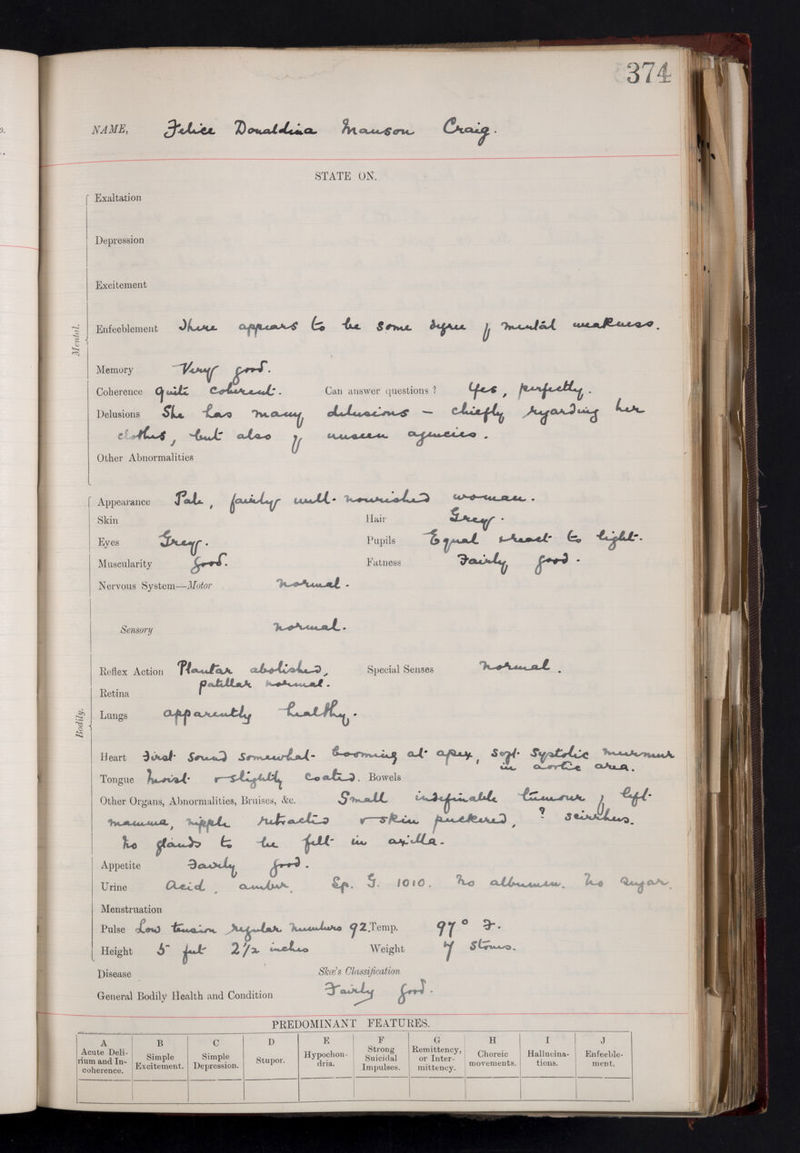 374
NAME, Felice Donaldina Manson Craig.
STATE ON.
Mental.
Exaltation
Depression
Excitement
Enfeeblement There appears to be some degree of mental weakness.
Memory Very good.
Coherence Quite coherent. Can answer questions? Yes, perfectly.
Delusions She has many delusions — chiefly regarding her
clothes, but also of unseen agencies.
Other Abnormalities
Bodily.
Appearance Pale, fairly well-nourished woman.
Skin Hair Grey.
Eyes Grey. Pupils Equal & react to light.
Muscularity Good. Fatness Fairly good.
Nervous System—Motor normal.
Sensory normal.
Reflex Action Plantar abolished, Special Senses normal.
patellar normal.
Retina
Lungs apparently healthy.
Heart First sound somewhat booming at apex, soft systolic murmur
in aortic area.
Tongue moist & slightly coated. Bowels
Other Organs, Abnormalities, Bruises, &c. Small indefinable tumour of left
mamma, nipple retracted & skin puckered, ? scirrhus.
No glands to be felt in axilla.
Appetite Fairly good.
Urine Acid, amber, Sp. G. 1010. No albumen. No sugar.
Menstruation
Pulse Low tension regular numbers 92. Temp. 97° F.
Height 5 feet 2 1/2 inches Weight 7 stones.
Disease Skae's Classification
General Bodily Health and Condition Fairly good.
PREDOMINANT FEATURES.
A B C D E F G H I J
Acute Delirium and Incoherence. Simple Excitement. Simple Depression. Stupor. Hypochondria. Strong Suicidal Impulses. Remittency, or Intermittency. Choreic movements. Hallucinations. Enfeeblement.